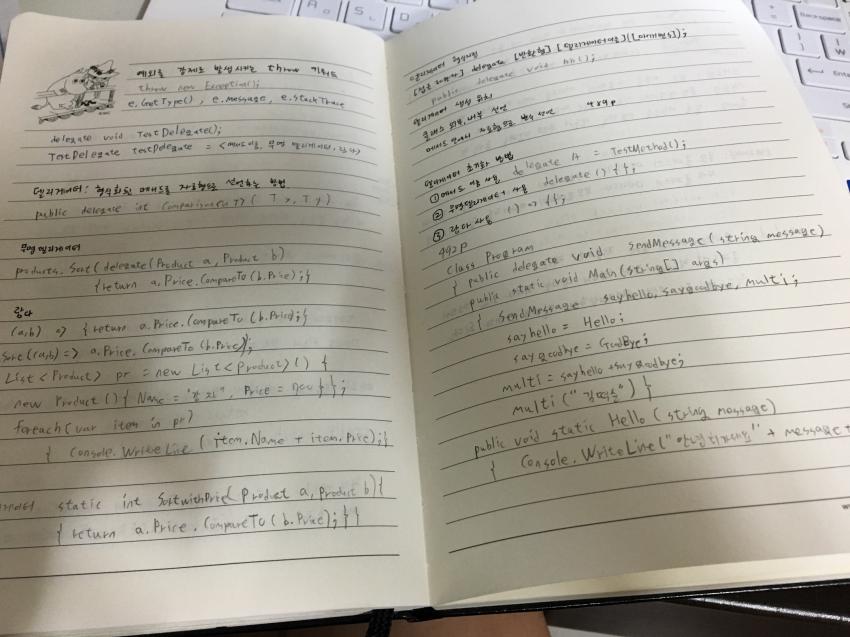 예외를 강제로 발생시키는 throw 키워드
throw new Exception();
e.GetType(), e.Message, e.StackTrace
delegate void TestDelegate();
TestDelegate testDelegate = <메서드이름, 무명 델리게이터, 람다>
델리게이터: 형식화된 메서드를 자료형으로 선언하는 방법
public delegate int Comparison<T>( T x, T y)
무명 델리게이터
products.Sort(delegate(Product a, Product b)
{return a.Price.CompareTo(b.Price);}
람다
(a,b) => {return a.Price.CompareTo(b.Price);}
Sort((a,b)=> a.Price.CompareTo(b.Price));
List<Product> pr = new List<Product>() {
new Product(){ Name = "감자", Price = 500 } };
foreach(var item in pr)
{ Console.WriteLine (item.Name + item.Price);}
static int SortwithPrice(Product a, Product b){
{return a.Price.CompareTo(b.Price);}}
델리게이터 형식지정
[접근 제한자] delegate [반환형] [델리게이터이름]([매개변수]);
public delegate void hh();
델리게이터 생성 위치
클래스 외부, 내부 선언
메서드 안에서 자료형으로 변수 선언 489p
델리게이터 초기화 방법
① 메서드 이름 사용 delegate A = TestMethod();
② 무명델리게이터 사용 delegate () { };
③ 람다 사용 () => { };
492p
Class Program
{ public delegate void SendMessage(string message)
public static void Main(string[] args)
{ SendMessage sayhello, saygoodbye, multi;
sayhello = Hello;
saygoodbye = GodBye;
multi = sayhello + saygoodbye;
multi("김떡순") }
public void static Hello(string message)
{ Console.WriteLine("안녕히가세요" + message +